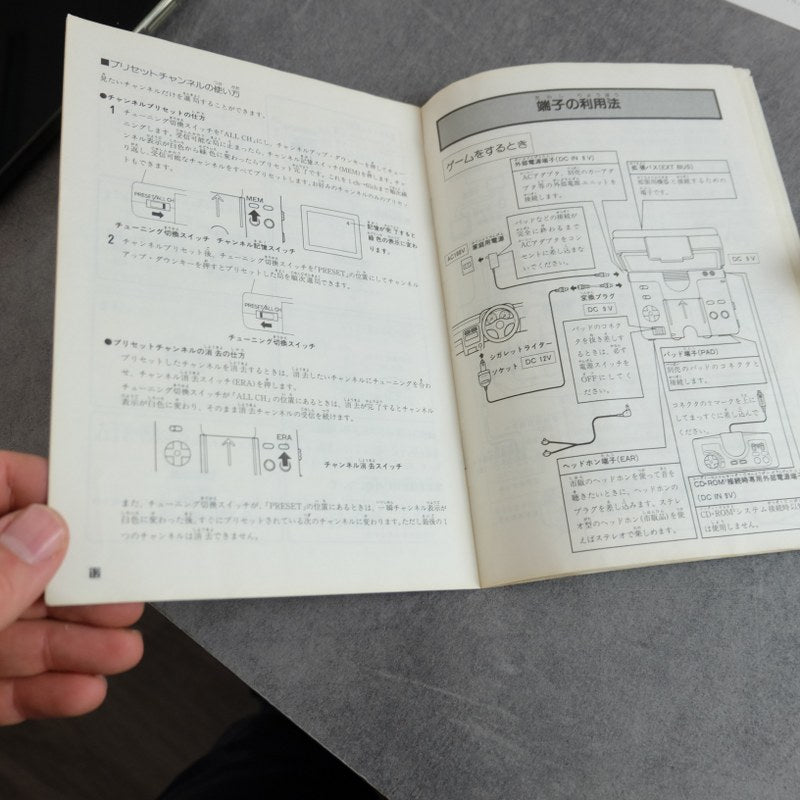 ■プリセットチャンネルの使い方
見たいチャンネルだけを選局することができます。
●チャンネルプリセットの仕方
1 チューニング切換スイッチを「ALL CH」にし、チャンネルアップ・ダウンキーを押してチュー
ニングします。受信可能な局に止まったら、チャンネル記憶スイッチ(MEM)を押します。チャ
ンネル表示が白色から緑色に変わったらプリセット完了です。これを1ch~62chまで順次繰
り返し、受信可能なチャンネルをすべてプリセットします。お好みのチャンネルのみのプリセッ
トもできます。
PRESET/ALL CH
MEM
4
記憶が完了すると
緑色の表示に変わ
ります。
チューニング切換スイッチ チャンネル記憶スイッチ
2 チャンネルプリセット後、チューニング切換スイッチを「PRESET」の位置にしてチャンネル
アップ・ダウンキーを押すとプリセットした局を順次選局できます。
PRESET/ALL CH
チューニング切換スイッチ
●プリセットチャンネルの消去の仕方
プリセットしたチャンネルを消去するときは、消去したいチャンネルにチューニングを合わ
せ、チャンネル消去スイッチ(ERA)を押します。
チューニング切換スイッチが「ALL CH」の位置にあるときは、消去が完了するとチャンネル
表示が白色に変わり、そのまま消去チャンネルの受信を続けます。
ERA
チャンネル消去スイッチ
また、チューニング切換スイッチが、「PRESET」の位置にあるときは、一瞬チャンネル表示が
白色に変わった後、すぐにプリセットされている次のチャンネルに変わります。ただし最後の1
つのチャンネルは消去できません。
12
端子の利用法
ゲームをするとき
外部電源端子(DC IN 9V)
ACアダプタ、別売のカーアダプ
タ等の外部電源ユニットを
接続します。
拡張バス(EXT BUS)
拡張用機器と接続するための
端子です。
AC100V
家庭用電源
パッドなどの接続が
完全に終わるまで
ACアダプタをコン
セントに差し込まな
いでください。
DC 9V
変換プラグ
DC 9V
シガレットライター
ソケット
DC 12V
パッドのコネク
タを抜き差しす
るときは、必ず
電源スイッチを
OFFにしてく
ださい。
パッド端子(PAD)
別売のパッドのコネクタと
接続します。
コネクタの▽マークを上に
してまっすぐに差し込んで
ください。
ヘッドホン端子(EAR)
市販のヘッドホンを使って音を
聴きたいときに、ヘッドホンの
プラグを差し込みます。ステレ
オ型のヘッドホン(市販品)を使
えばステレオで楽しめます。
CD-ROM²接続時専用外部電源端子
(DC IN 9V)
CD-ROM²システム接続時以外
は使用しません。